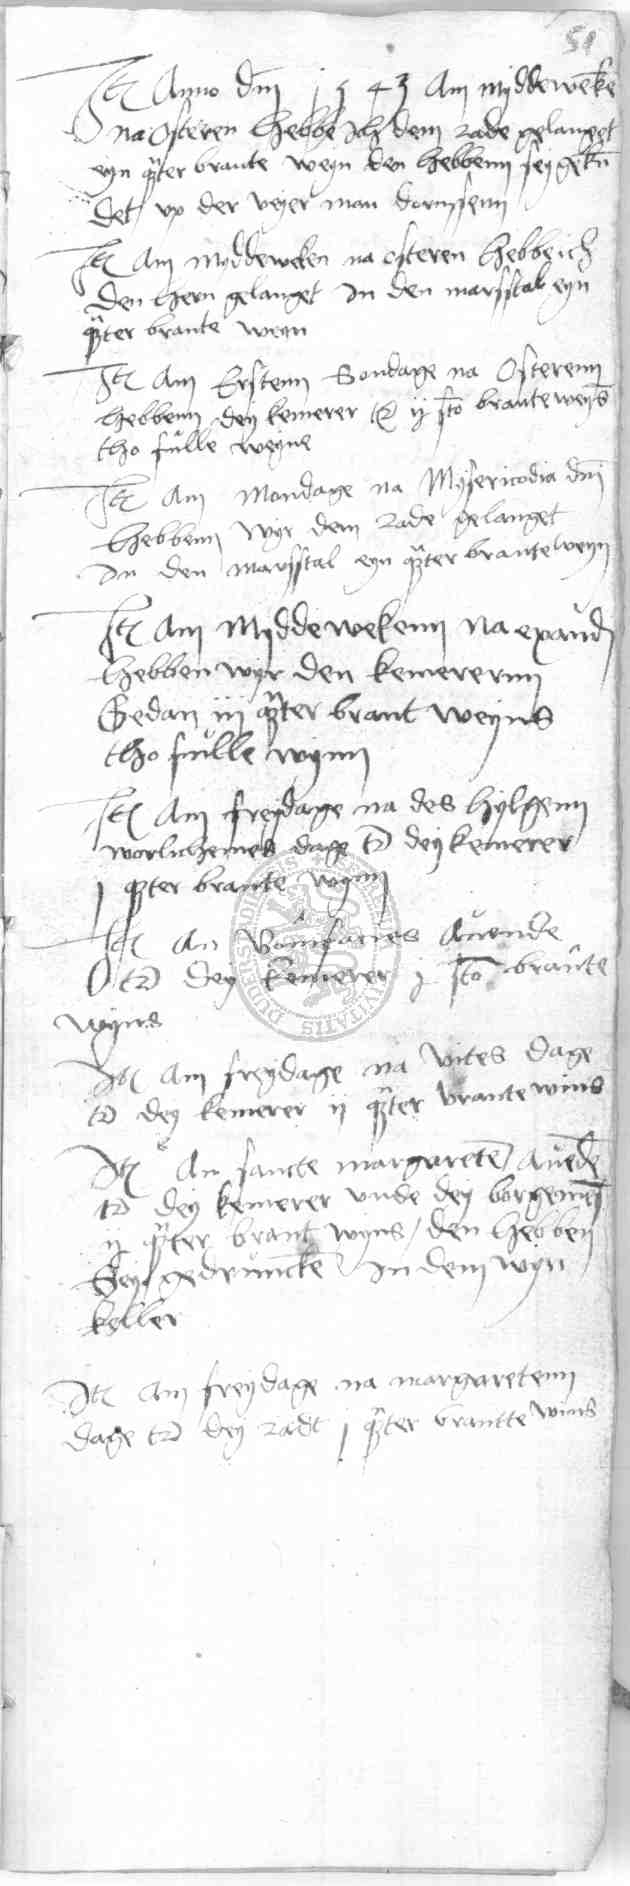 51
Itē Anno dm̄ 1543 Am myddewekē
na Osteren hebbe ich dem rade gelanget
eyn q̄rter brante weyn den hebbenn sey
det up der veyer man
Itē Am myddeweken na osteren hebbe ich
den hern gelanget In den marsstal eyn
q̄rter brante weyn
Itē Am Erstenn Sondage na Osterenn
hebbenn dey kemerer ij sto brante weyns
tho fulle weyne
Itē Am Mondage na Mysericodia dm̄
hebbenn wyr dem rade gelanget
In den marsstal eyn q̄rter brante weyn
Itē Am Myddewekenn na exaud
hebben wyr den kemerernn
Gedan iij q̄rter brant weyns
tho fulle wynn
Itē Am freydage na des hylgenn
worlichemes dage dey kemerer
j q̄rter brante wynn
Itē An Bonifacies Auende
dey kemerer j sto brante
wyns
Itē Am freydage na vites dage
dey kemerer ij q̄rter brante wins
Itē An sancte margaretē Auēde
dey kemerer vnde dey borgemeſ
ij q̄rter brant wyns / den hebben
Sey gedrunckē In dem wyn
keller
Itē Am freydage na margaretenn
dage dey radt j q̄rter brantte wins